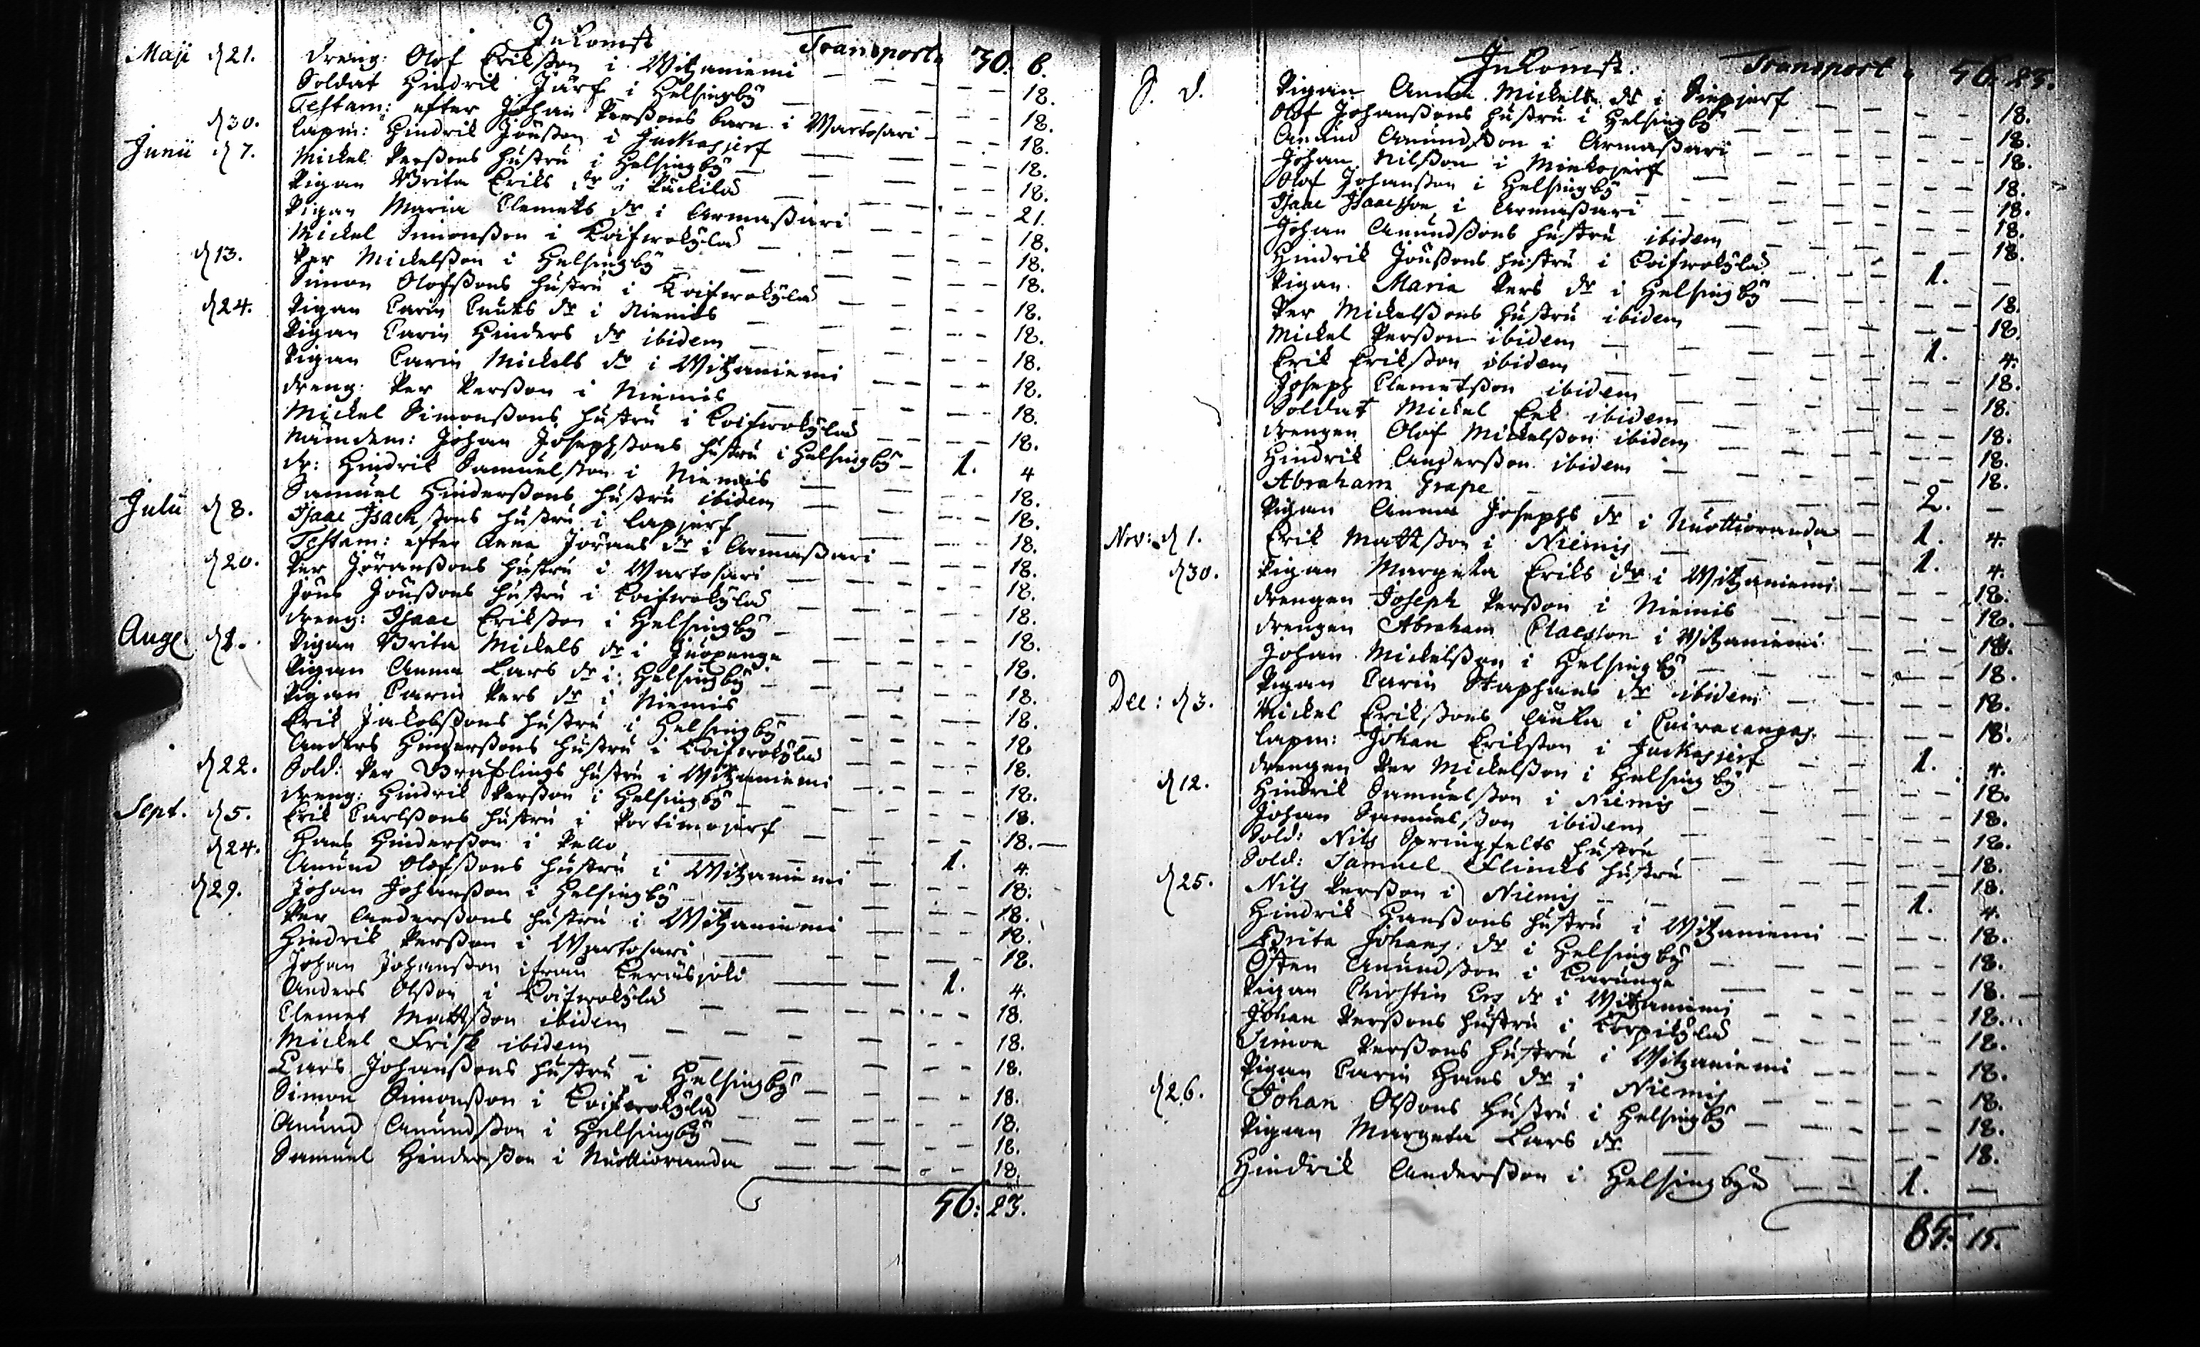 Inkomst Transport 30. 6.
Maji d 21. dreng: Olof Eriksson i Witzaniemi — — — 18.
Soldat Hindrik Järf i Helsingbÿ — — — 18.
Testam: efter Johan Perssons barn i Martosari — 18.
d 30. lapm: Hindrik Jönsson i Juckasjerf — — 18.
Junii d 7. Mickel Perssons hustru i Helsingbÿ — — 18.
Pigan Brita Eriks dr i Päckilä — — 21.
Pigan Maria Clemets dr i Armassari — — 18.
Mickel Simonsson i Koifwokÿlä — — 18.
d 13. Per Mickelsson i Helsingbÿ — — 18.
Simon Olofssons hustru i Koifwokÿlä — — 18.
d 24. Pigan Carin Knuts dr i Niemis — — 18.
Pigan Carin Hinders dr ibidem — — 18.
Pigan Carin Mickels dr i Witzaniemi — — 18.
dreng: Per Persson i Niemis — — 18.
Mickel Simonssons hustru i Koifwokÿlä — — 18.
Nämdem: Johan Josephssons hustru i Helsingbÿ — 1. 4
dr: Hindrik Samuelsson i Niemis — — 18.
Samuel Hinderssons hustru ibidem — — 18.
Julii d 8. Isaac Isacssons hustru i lapjerf — — 18.
Testam: efter Anna Jörans dr i Armassari — — 18.
d 20. Per Jöranssons hustru i Martosari — — 18.
Jöns Jönssons hustru i Koifwokÿlä — — 18.
dreng: Isaac Eriksson i Helsingbÿ — — 18.
Aug: d 1. Pigan Brita Mickels dr i Juopenge — — 18.
Pigan Anna Lars dr i Helsingbÿ — — 18.
Pigan Carin Pers dr i Niemis — — 18.
Erik Jakobssons hustru i Helsingbÿ — — 18
Anders Hinderssons hustru i Koifwokÿlä — — 18.
d 22. Sold: Per Braflings hustru i Witzaniemi — — 18.
dreng: Hindrik Persson i Helsingbÿ — — 18.
Sept. d 5. Erik Carlssons hustru i Portimojerf — — 18.
d 24. Hans Hindersson i Pello — — 1. 4.
Anund Olofssons hustru i Witzaniemi — — 18.
d 29. Johan Johansson i Helsingbÿ — — 18.
Per Anderssons hustru i Witzaniemi — — 18.
Hindrik Persson i Martosari — — 18.
Johan Johansson ifrån — — 1. 4.
Anders Olsson i Koifwokÿlä — — 18.
Clemet Mattsson ibidem — — 18.
Mickel Frisk ibidem — — 18.
Lars Johanssons hustru i Helsingbÿ — — 18.
Simon Simonsson i Koifwokÿlä — — 18.
Anund Anundsson i Helsingbÿ — — 18.
Samuel Hindersson i Nuottioranda — — 18.
56: 23.
Inkomst. Transport 56. 23.
S. d. Pigan Anna Mickels dr i Siepjerf — — 18.
Olof Johanssons hustru i Helsingbÿ — — 18.
Anund Anundsson i Armassari — — 18.
Johan Nilsson i Miekojerf — — 18.
Olof Johansson i Helsingbÿ — — 18.
Isaac Isaacsson i Armassari — — 18.
Johan Anundssons hustru ibidem — — 18.
Hindrik Jönssons hustru i Koifwokÿlä — 1. —
Pigan Maria Pers dr i Helsingbÿ — — 18.
Per Mickelssons hustru ibidem — — 18.
Mickel Persson ibidem — — 1. 4.
Erik Eriksson ibidem — — 18.
Joseph Clemetsson ibidem — — 18.
Soldat Mickel Eek ibidem — — 18.
drengen Olof Mickelsson ibidem — — 18.
Hindrik Andersson ibidem — — 18.
Abraham Grape — — 2. —
Pigan Anna Josephs dr i Nuottioranda — 1. 4.
Nov: d 1. Erik Mattsson i Niemis — — 1. 4.
d 30. Pigan Margeta Eriks dr i Witzaniemi — — 18.
drengen Joseph Persson i Niemis — — 18.
drengen Abraham Claesson i Witzaniemi — — 18.
Johan Mickelsson i Helsingbÿ — — 18.
Pigan Carin Staphans dr ibidem — — 18.
Dec: d 3. Mickel Erikssons i — — 18.
lapm: Johan Eriksson i Juckasjerf — 1. 4.
drengen Per Mickelsson i Helsingbÿ — — 18.
d 12. Hindrik Samuelsson i Niemis — — 18.
Johan Samuelsson ibidem — — 18.
Sold: Nils Springfelts hustru — — 18.
Sold: Samuel Flincks hustru — — 18.
d 25. Nils Persson i Niemis — — 1. 4.
Hindrik Hanssons hustru i Witzaniemi — — 18.
Brita Johans dr i Helsingbÿ — — 18.
Östen Anundsson i Carunge — — 18.
Pigan Chirstin Ers dr i Witzaniemi — — 18.
Johan Perssons hustru i Corpikÿlä — — 18.
Simon Perssons hustru i Witzaniemi — — 18.
Pigan Carin Hans dr i Niemis — — 18.
d 26. Johan Olssons hustru i Helsingbÿ — — 18.
Pigan Margeta Lars dr — — 18.
Hindrik Andersson i Helsingbÿn — — 1. —
85: 15.